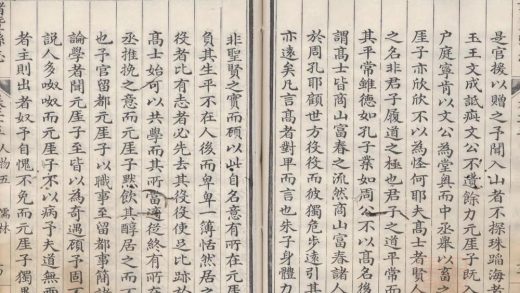 是官援以贈之予聞入山者不探珠蹈海者
玉王文成詆文公不遺餘力元厓子既入
戶庭寧肯以文公為堂奧而中丞舉以畜之
厓子亦欣欣不以為怪何耶夫髙士者賢人
之名非君子履道之極也君子之道平常而
其平常雖德如孔子業如周公不以髙名後
謂髙士皆商山富春之流然商山富春諸人
於周孔耶顧世方役役而彼獨危步遠引其
亦遠矣凡言髙者對卑而言也朱子身體力
非聖賢之實而碩以此自名意有所在元厓
負其生平不在人後而卑卑一簿恬然居之
役者比有志者必先去其役役使足比跡於
髙士始可以共學而其所當適從終有所在
丞推挽之意而元厓子黙飲其醇居之而
也予官留都元厓子以職事至留都事簡諸
論學者聞元厓子至皆以為奇遇碩予固不
說人多呶呶而元厓子不以病予夫道無
者主則出者奴予自愧不免而元厓子獨
暨縣志
人物五
儒林